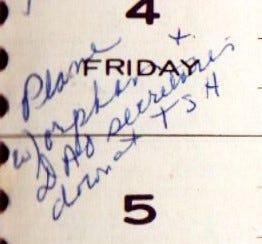 4
FRIDAY
Plane
w/orphans +
DAO secretaries
down at TSH
5